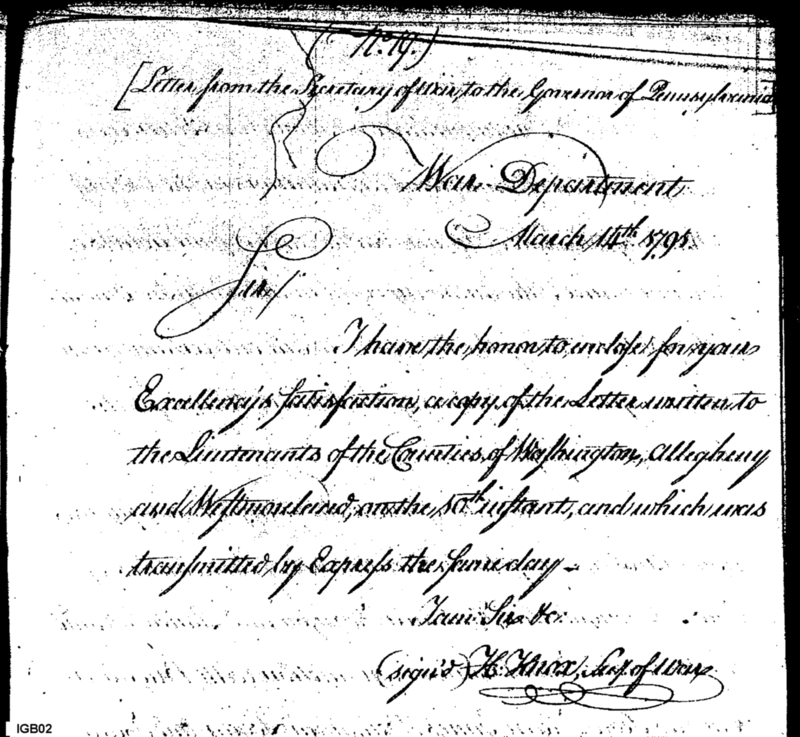 (No. 19.)
[Letter from the Secretary of War, to the Governor of Pennsylvania]
War Department
March 14th 1791
Sir/
I have the honor to enclose for your
Excellency's satisfaction, a copy of the Letter written to
the Lieutenants of the Counties of Washington, Allegheny
and Westmoreland, on the 10th instant, and which was
transmitted by Express the same day_
I am Sir &c.
(sign'd) H Knox, Secy. of War
IGB02